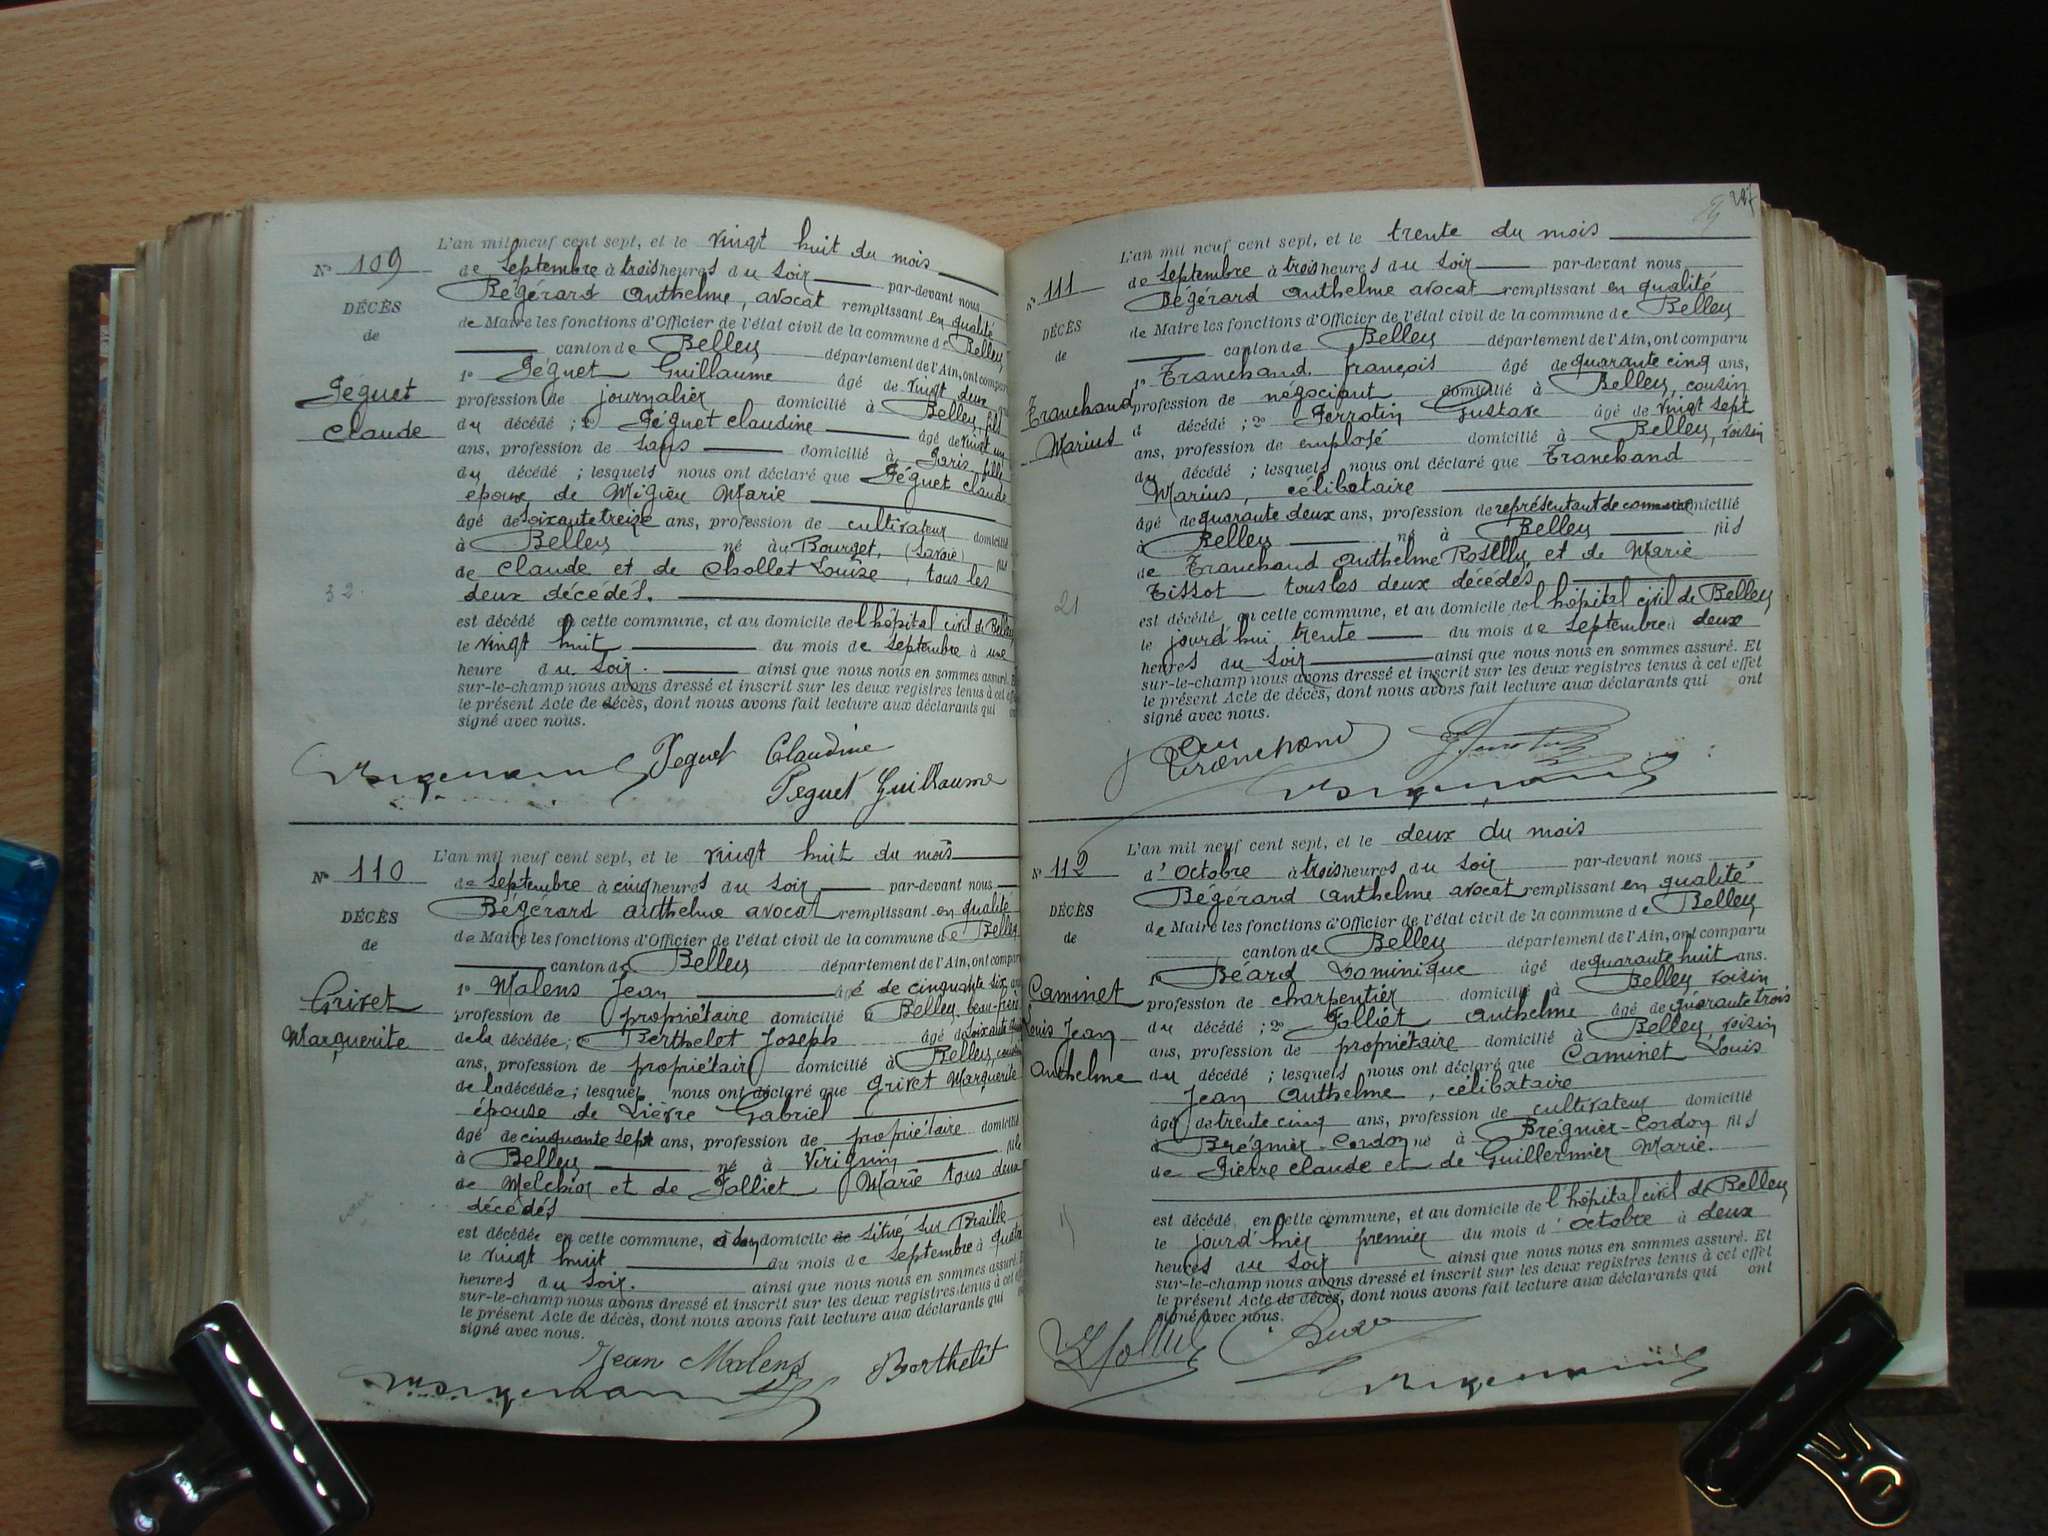 N° 109
DÉCÈS
de
Péguet
Claude
32
L'an mil neuf cent sept, et le vingt huit du mois
de Septembre à trois heures du soir par-devant nous
Bégérard Anthelme, avocat remplissant en qualité
de Maire les fonctions d'Officier de l'état civil de la commune de Belley
canton de Belley département de l'Ain, ont comparu
1° Péguet Guillaume âgé de vingt deux
profession de journalier domicilié à Belley, fils
du décédé ; 2° Péguet Claudine âgé de vingt un
ans, profession de sans domicilié à Paris, fille
du décédé ; lesquels nous ont déclaré que Péguet Claude
époux de Migieu Marie
âgé de soixante treize ans, profession de cultivateur domicilié
à Belley né au Bourget, (Savoie) fils
de Claude et de Chollet Louise, tous les
deux décédés.
est décédé en cette commune, et au domicile de l'hôpital civil de Belley
le vingt huit du mois de Septembre à une
heure du soir. ainsi que nous nous en sommes assuré. Et
sur-le-champ nous avons dressé et inscrit sur les deux registres tenus à cet effet
le présent Acte de décès, dont nous avons fait lecture aux déclarants qui ont
signé avec nous.
Peguet Claudine
Peguet Guillaume
N° 110
DÉCÈS
de
Grivet
Marguerite
L'an mil neuf cent sept, et le vingt huit du mois
de Septembre à cinq heures du soir par-devant nous
Bégérard Anthelme avocat remplissant en qualité
de Maire les fonctions d'Officier de l'état civil de la commune de Belley
canton de Belley département de l'Ain, ont comparu
1° Malens Jean âgé de cinquante six ans
profession de propriétaire domicilié à Belley, beau-frère
de la décédée; Berthelet Joseph âgé de soixante
ans, profession de propriétaire domicilié à Belley, cousin
de la décédée; lesquels nous ont déclaré que Grivet Marguerite
épouse de Lièvre Gabriel
âgé de cinquante sept ans, profession de propriétaire domicilié
à Belley né à Virignin fille
de Melchior et de Jolliet Marie tous deux
décédés
est décédée en cette commune, à son domicile de situé sur Braille
le vingt huit du mois de Septembre à quatre
heures du soir. ainsi que nous nous en sommes assuré. Et
sur-le-champ nous avons dressé et inscrit sur les deux registres tenus à cet effet
le présent Acte de décès, dont nous avons fait lecture aux déclarants qui
signé avec nous.
Jean Malens Berthelet
N° 111
DÉCÈS
de
Tranchand
Marius
21
L'an mil neuf cent sept, et le trente du mois
de Septembre à trois heures du soir par-devant nous
Bégérard Anthelme avocat remplissant en qualité
de Maire les fonctions d'Officier de l'état civil de la commune de Belley
canton de Belley département de l'Ain, ont comparu
1° Tranchand François âgé de quarante cinq ans,
profession de négociant domicilié à Belley, cousin
d décédé ; 2° Perrotin Gustave âgé de vingt sept
ans, profession de employé domicilié à Belley, voisin
du décédé ; lesquels nous ont déclaré que Tranchand
Marius, célibataire
âgé de quarante deux ans, profession de représentant de commerce domicilié
à Belley né à Belley fils
de Tranchand Anthelme Roselly et de Marie
Tissot tous les deux décédés
est décédé en cette commune, et au domicile de l'hôpital civil de Belley
le jourd'hui trente du mois de Septembre à deux
heures du soir ainsi que nous nous en sommes assuré. Et
sur-le-champ nous avons dressé et inscrit sur les deux registres tenus à cet effet
le présent Acte de décès, dont nous avons fait lecture aux déclarants qui ont
signé avec nous.
Tranchand
N° 112
DÉCÈS
de
Caminet
Louis Jean
Anthelme
L'an mil neuf cent sept, et le deux du mois
d'Octobre à trois heures du soir par-devant nous
Bégérard Anthelme avocat remplissant en qualité
de Maire les fonctions d'Officier de l'état civil de la commune de Belley
canton de Belley département de l'Ain, ont comparu
1° Béard Dominique âgé de quarante huit ans.
profession de charpentier domicilié à Belley voisin
du décédé ; 2° Jolliet Anthelme âgé de quarante trois
ans, profession de propriétaire domicilié à Belley, voisin
du décédé ; lesquels nous ont déclaré que Caminet Louis
Jean Anthelme, célibataire
âgé de trente cinq ans, profession de cultivateur domicilié
à Brégnier-Cordon né à Brégnier-Cordon fils
de Pierre Claude et de Guillermier Marie.
est décédé en cette commune, et au domicile de l'hôpital civil de Belley
le jourd'hier premier du mois d'Octobre à deux
heures du soir ainsi que nous nous en sommes assuré. Et
sur-le-champ nous avons dressé et inscrit sur les deux registres tenus à cet effet
le présent Acte de décès, dont nous avons fait lecture aux déclarants qui ont
signé avec nous.